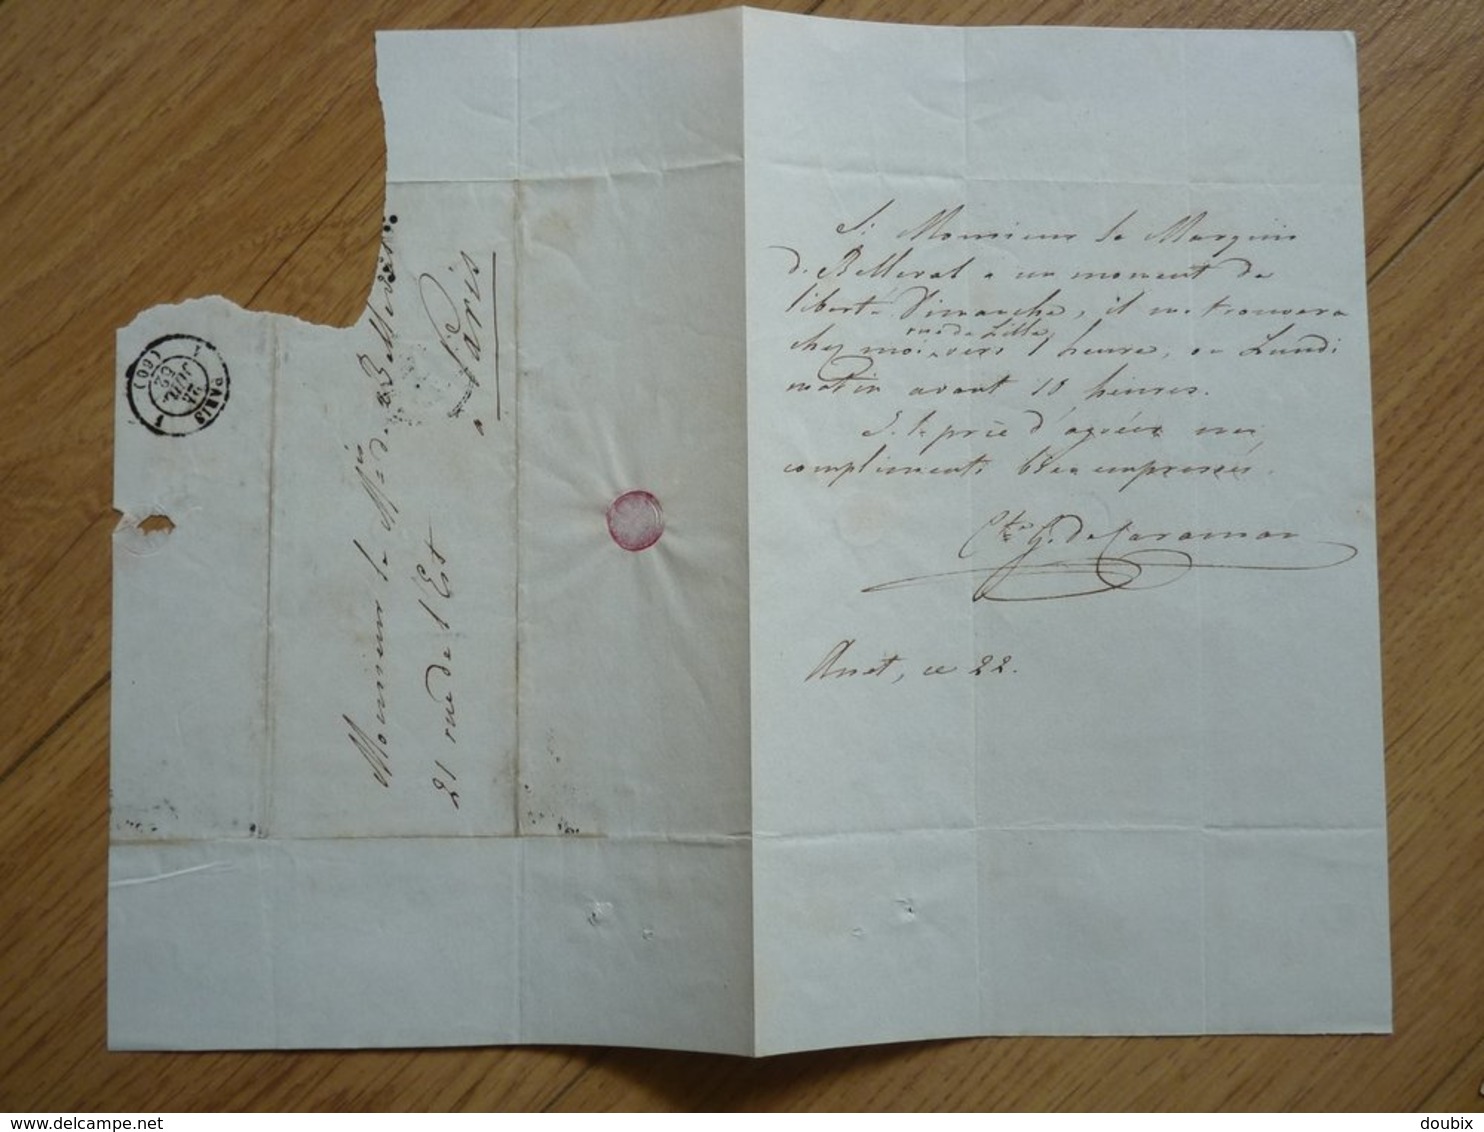 Si Monsieur le Marquis
de Belleval a un moment de
liberté Dimanche, il me trouvera
rue de Lille,
chez moi, vers 1 heure, ou Lundi
matin avant 10 heures.
Je le prie d'agréer mes
compliments bien empressés.
Cte G. de Caraman
Anet, ce 22.
Monsieur le Mis de Belleval
21 rue de l'Est
à Paris
PARIS
(60)
© delcampe.net
doubix